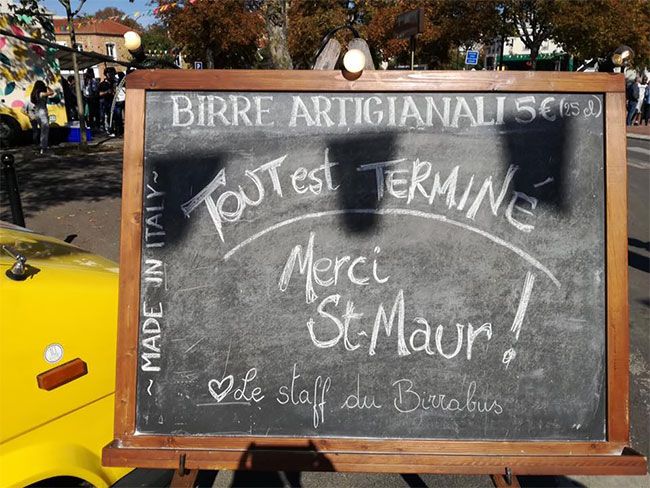 BIRRE ARTIGIANALI 5€ (25 cl)
TOUT est TERMINÉ
Merci
St-Maur !
Le staff du Birrabus
~ MADE IN ITALY ~